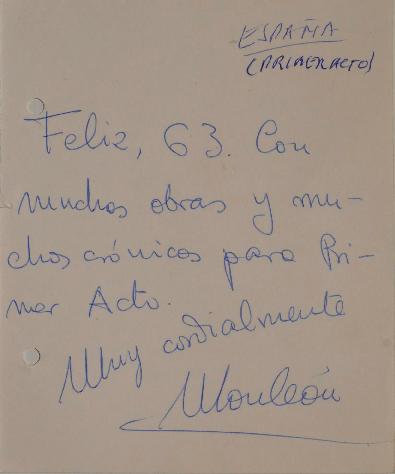 ESPAÑA
(PRIMER ACTO)
Feliz, 63. Con
muchas obras y mu-
chas crónicas para Pri-
mer Acto.
Muy cordialmente
Monleón